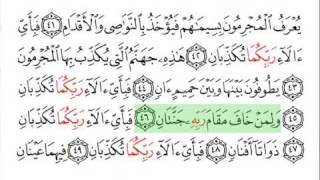 يُعْرَفُ ٱلْمُجْرِمُونَ بِسِيمَٰهُمْ فَيُؤْخَذُ بِٱلنَّوَٰصِى وَٱلْأَقْدَامِ ٤١ فَبِأَىِّ
ءَالَآءِ رَبِّكُمَا تُكَذِّبَانِ ٤٢ هَٰذِهِۦ جَهَنَّمُ ٱلَّتِى يُكَذِّبُ بِهَا ٱلْمُجْرِمُونَ
٤٣ يَطُوفُونَ بَيْنَهَا وَبَيْنَ حَمِيمٍ ءَانٍ ٤٤ فَبِأَىِّ ءَالَآءِ رَبِّكُمَا تُكَذِّبَانِ
٤٥ وَلِمَنْ خَافَ مَقَامَ رَبِّهِۦ جَنَّتَانِ ٤٦ فَبِأَىِّ ءَالَآءِ رَبِّكُمَا تُكَذِّبَانِ
٤٧ ذَوَاتَآ أَفْنَانٍ ٤٨ فَبِأَىِّ ءَالَآءِ رَبِّكُمَا تُكَذِّبَانِ ٤٩ فِيهِمَا عَيْنَانِ